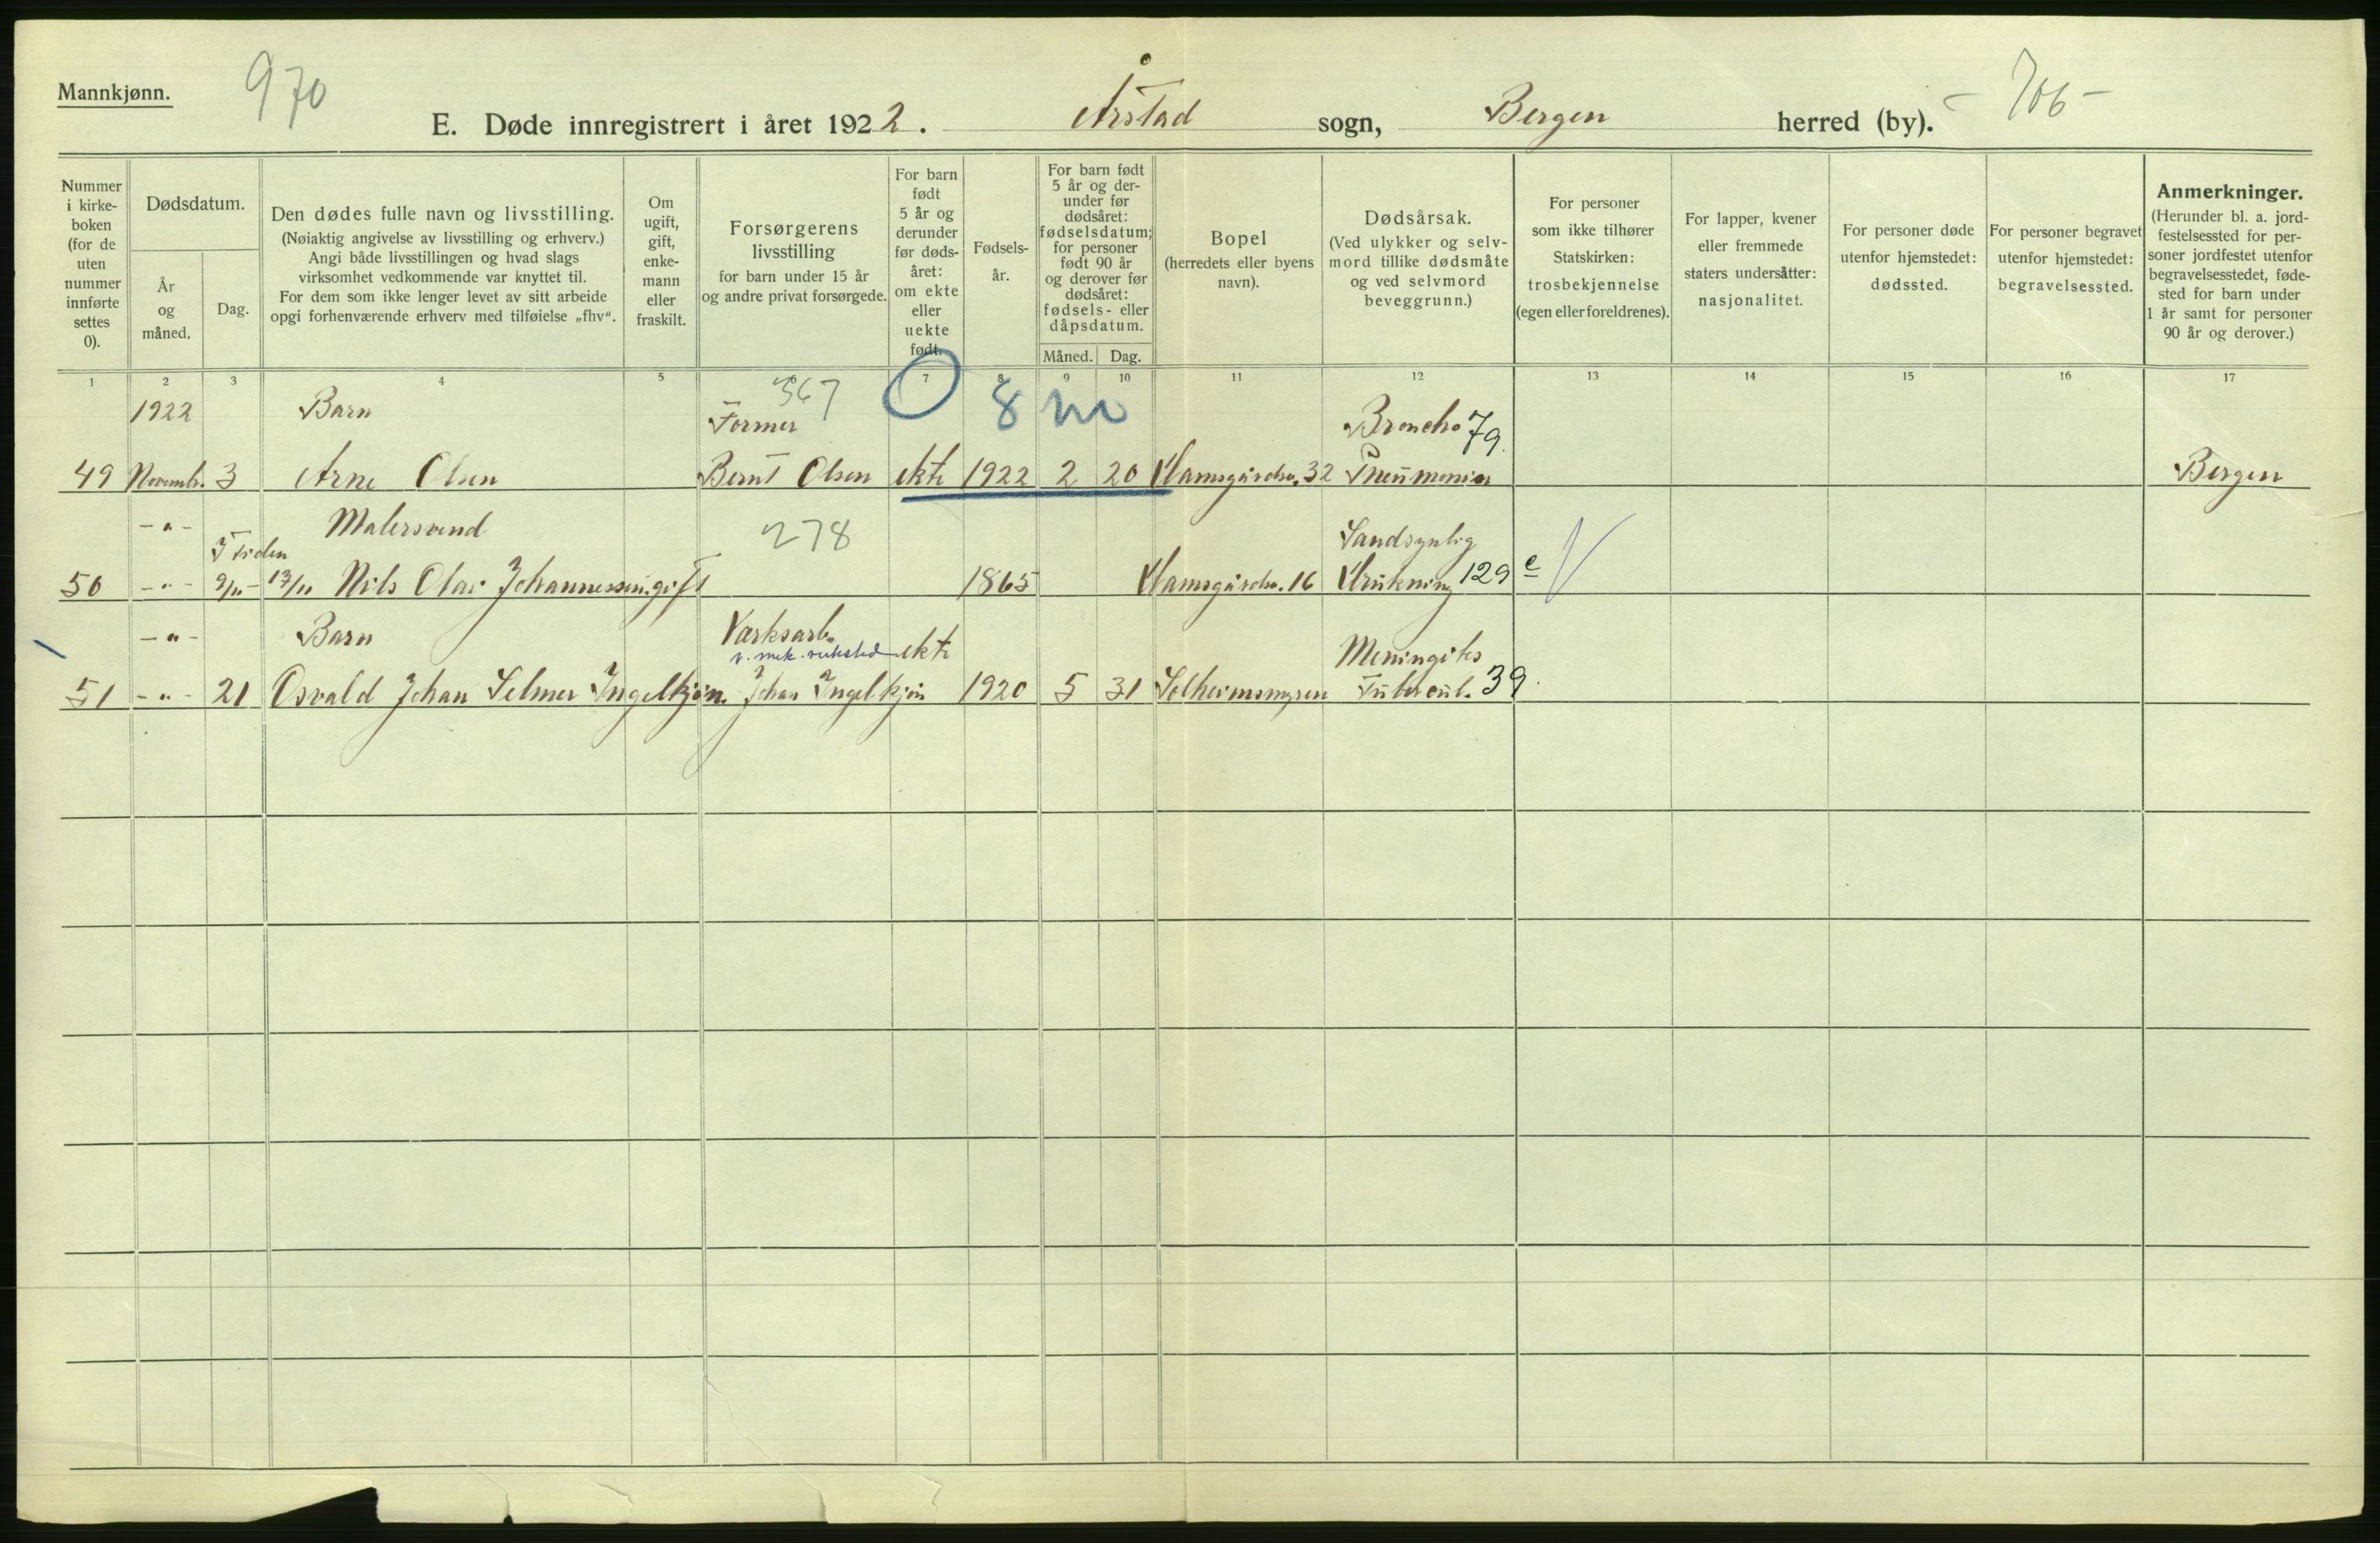 Mannkjønn.
970
E. Døde innregistrert i året 1922. Årstad sogn, Bergen herred (by).
- 706 -
Nummer
i kirke-
boken
(for de
uten
nummer
innførte
settes
0).
Dødsdatum.
År
og
måned.
Dag.
Den dødes fulle navn og livsstilling.
(Nøiaktig angivelse av livsstilling og erhverv.)
Angi både livsstillingen og hvad slags
virksomhet vedkommende var knyttet til.
For dem som ikke lenger levet av sitt arbeide
opgi forhenværende erhverv med tilføielse „fhv“.
Om
ugift,
gift,
enke-
mann
eller
fraskilt.
Forsørgerens
livsstilling
for barn under 15 år
og andre privat forsørgede.
For barn
født
5 år og
derunder
før døds-
året:
om ekte
eller
uekte
født.
Fødsels-
år.
For barn født
5 år og der-
under før
dødsåret:
fødselsdatum;
for personer
født 90 år
og derover før
dødsåret:
fødsels- eller
dåpsdatum.
Måned. Dag.
Bopel
(herredets eller byens
navn).
Dødsårsak.
(Ved ulykker og selv-
mord tillike dødsmåte
og ved selvmord
beveggrunn.)
For personer
som ikke tilhører
Statskirken:
trosbekjennelse
(egen eller foreldrenes).
For lapper, kvener
eller fremmede
staters undersåtter:
nasjonalitet.
For personer døde
utenfor hjemstedet:
dødssted.
For personer begravet
utenfor hjemstedet:
begravelsessted.
Anmerkninger.
(Herunder bl. a. jord-
festelsessted for per-
soner jordfestet utenfor
begravelsesstedet, føde-
sted for barn under
1 år samt for personer
90 år og derover.)
1 2 3 4 5 6 7 8 9 10 11 12 13 14 15 16 17
1922 Barn Former 367 0 8 m Broncho 79.
49 Novembr. 3 Arne Olsen Bernt Olsen ekte 1922 2 20 32 Pneumonia Bergen
-"- I Tiden Malersvend 278 Sandsynlig
50 -"- 9/11 - 13/11 Nils Olai Johannessen. gift 1865 16 Drukning 129 e
-"- Barn Værksarb. ekte Meningitis
v. mek. verksted
51 -"- 21 Osvald Johan Selmer Ingelkjøn. Johan Ingelkjøn 1920 5 31 Solheimsmyren Tubercul. 39.